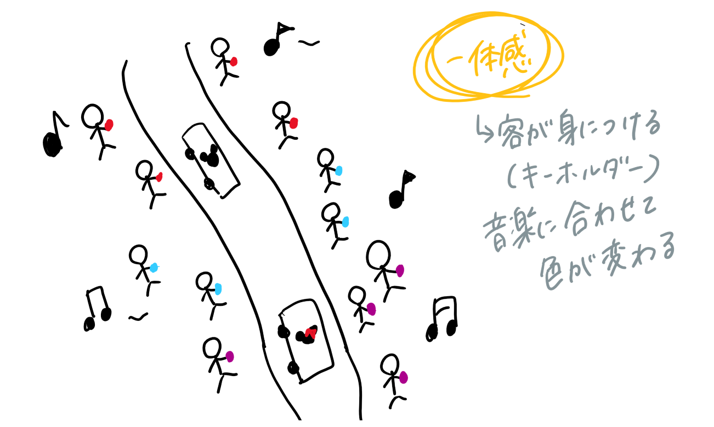 一体感
↳客が身につける
(キーホルダー)
音楽に合わせて
色が変わる